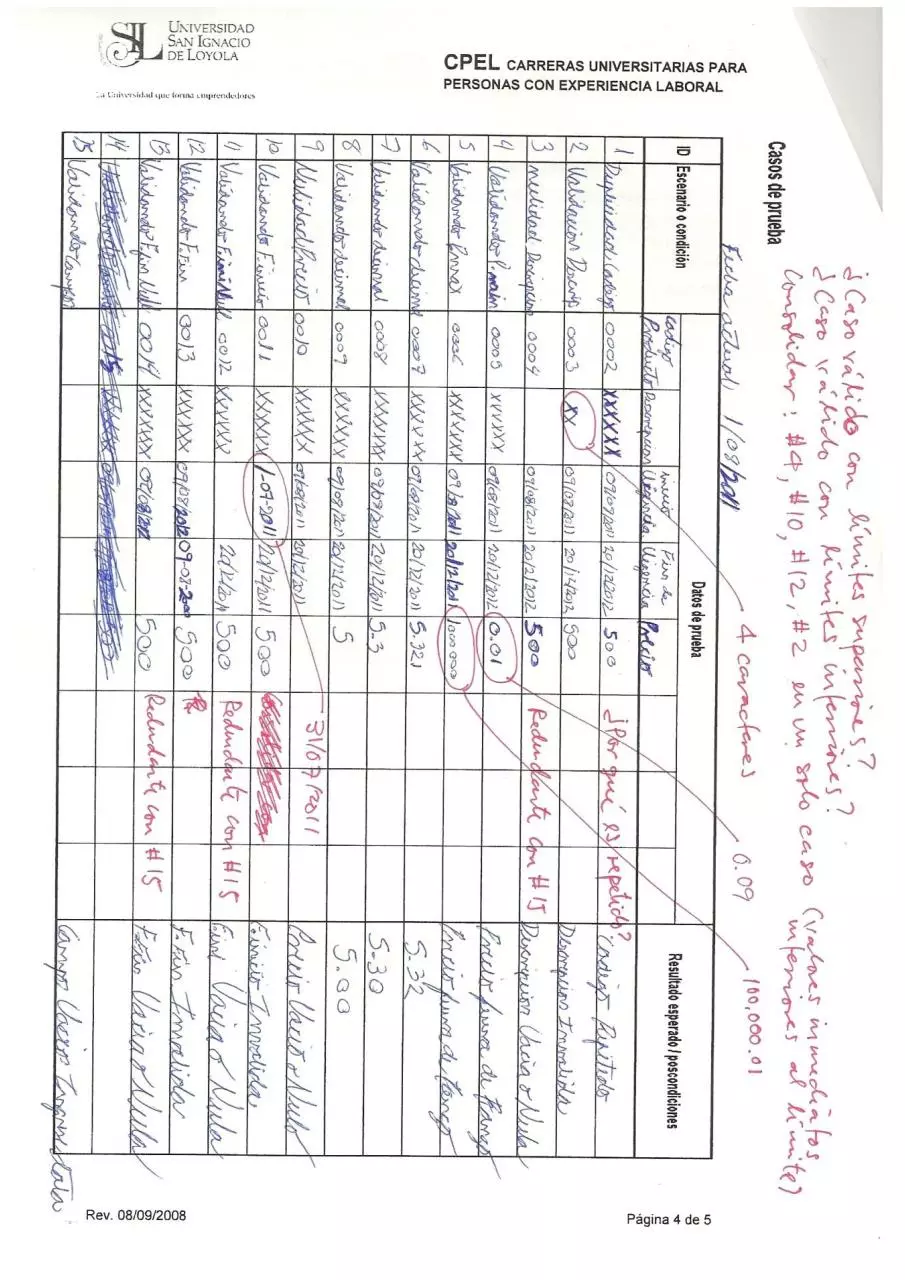 UNIVERSIDAD
SAN IGNACIO
DE LOYOLA
La Universidad que forma emprendedores
CPEL CARRERAS UNIVERSITARIAS PARA
PERSONAS CON EXPERIENCIA LABORAL
¿Caso válido con límites superiores?
¿Caso válido con límites inferiores?
Consolidar: #4, #10, #12, #2 en un solo caso (valores inmediatos inferiores al límite)
Casos de prueba
Fecha actual 1/08/2011
4 caracteres
0.09
100,000.01
ID Escenario o condición Datos de prueba Resultado esperado / poscondiciones
Codigo Producto Descripcion inicio Vigencia Fin de Vigencia Precio
1 Duplicidad Codigo 0002 XXXXXX 09/08/2011 20/12/2012 500 ¿Por qué es repetido? Codigo Repetido
2 Validacion 0003 XX 09/08/2011 20/12/2012 500 Descripcion Invalida
3 nulidad 0004 09/08/2011 20/12/2012 500 Redundante con #15 Descripcion Vacia o Nula
4 Validando 0005 XXXXXX 09/08/2011 20/12/2012 0.01 Precio fuera de Rango
5 Validando 0006 XXXXXX 09/08/2011 20/12/2011 100000 Precio fuera de Rango
6 Validando decimal 0007 XXXXXX 09/08/2011 20/12/2011 5.321 5.32
7 Validando decimal 0008 XXXXXX 09/08/2011 20/12/2011 5.3 5.30
8 Validando decimal 0009 XXXXX 09/08/2011 20/12/2011 5 5.00
9 Nulidad Precio 0010 XXXXX 09/08/2011 20/12/2011 31/07/2011 Precio Vacio o Nulo
10 Validando F.inicio 0011 XXXXX 1-07-2011 20/12/2011 500 F.inicio Invalida
11 Validando 0012 XXXXXX 20/12/2011 500 Redundante con #15 Vacia o Nula
12 Validando F.Fin 0013 XXXXXX 09/08/2012 500 F.Fin Invalida
13 Validando F.fin Nula 0014 XXXXXX 09/08/2012 500 Redundante con #15 Vacia o Nula
14
15 Validando Campos Campos Vacios
Rev. 08/09/2008
Página 4 de 5